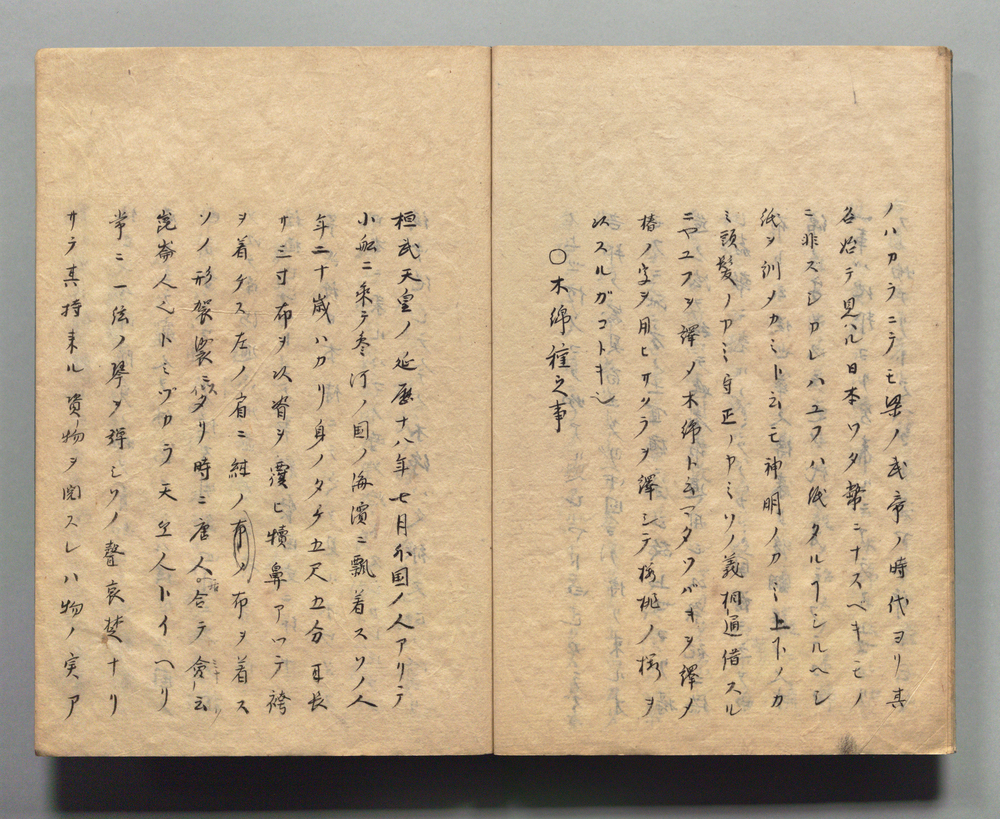 ノハカラニテモ梁ノ武帝ノ時代ヨリ其
名始テ見ハル日本ワタ幣ニナスヘキモノ
ニ非スシカレハユフハ紙タルヿシルヘシ
紙ヲ訓メカミト云モ神明ノカミ上下ノカ
ミ頭髪ノカミ守正ノカミソノ義相通借スル
ニヤユフヲ譯メ木綿ト云マタツバキヲ譯メ
椿ノ字ヲ用ヒサクラヲ譯シテ桜桃ノ桜ヲ
以スルガコトキ也
○木綿種之事
桓武天皇ノ延歷十八年七月外国ノ人アリテ
小舩ニ乗テ参河ノ国ノ海濱ニ飄着スソノ人
年二十歳ハカリ身ノタケ五尺五分耳長
サ三寸布ヲ以資ヲ覆ヒ犢鼻アツテ袴
ヲ着ケス左ノ肩ニ紺ノ布ヲ着ス
ソノ形袈裟ニ似タリ時ニ唐人合テ僉云
崑崙人也トミヅカラ天竺人トイヘリ
常ニ一弦ノ琴ヲ弾シソノ聲哀楚ナリ
サテ其持来ル資物ヲ閲スレハ物ノ実ア